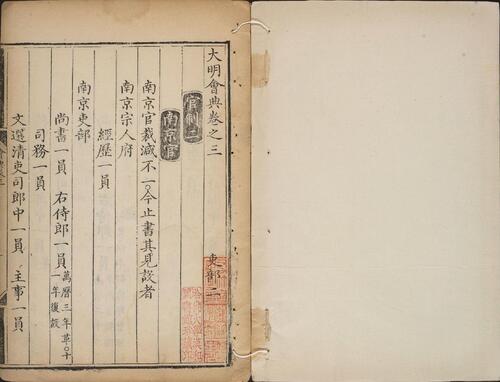 大明會典卷之三
吏部二
官制二
南京官
南京官裁減不一今止書其見設者
南京宗人府
經歷一員
南京吏部
尚書一員 右侍郎一員 萬曆三年革〇十一年復設
司務一員
文選清吏司郎中一員 主事一員